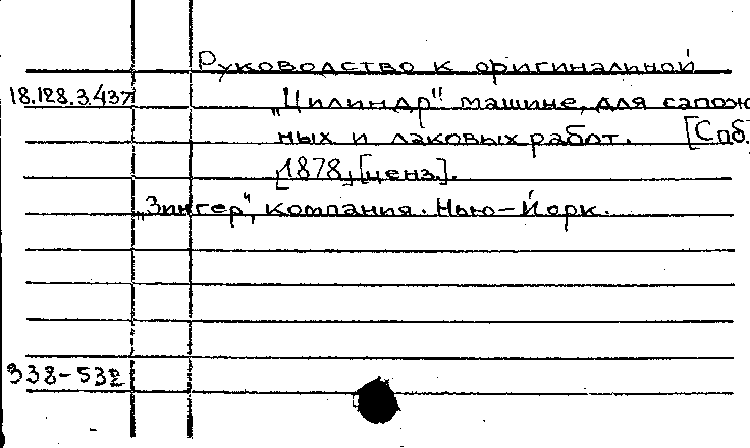 Руководство к оригинальной
18.128.3.437
„Цилиндр" машине, для сапож
ных и лаковых работ. [Спб.
[1878, [ценз].
„Зингер", компания. Нью-Йорк.
338-532